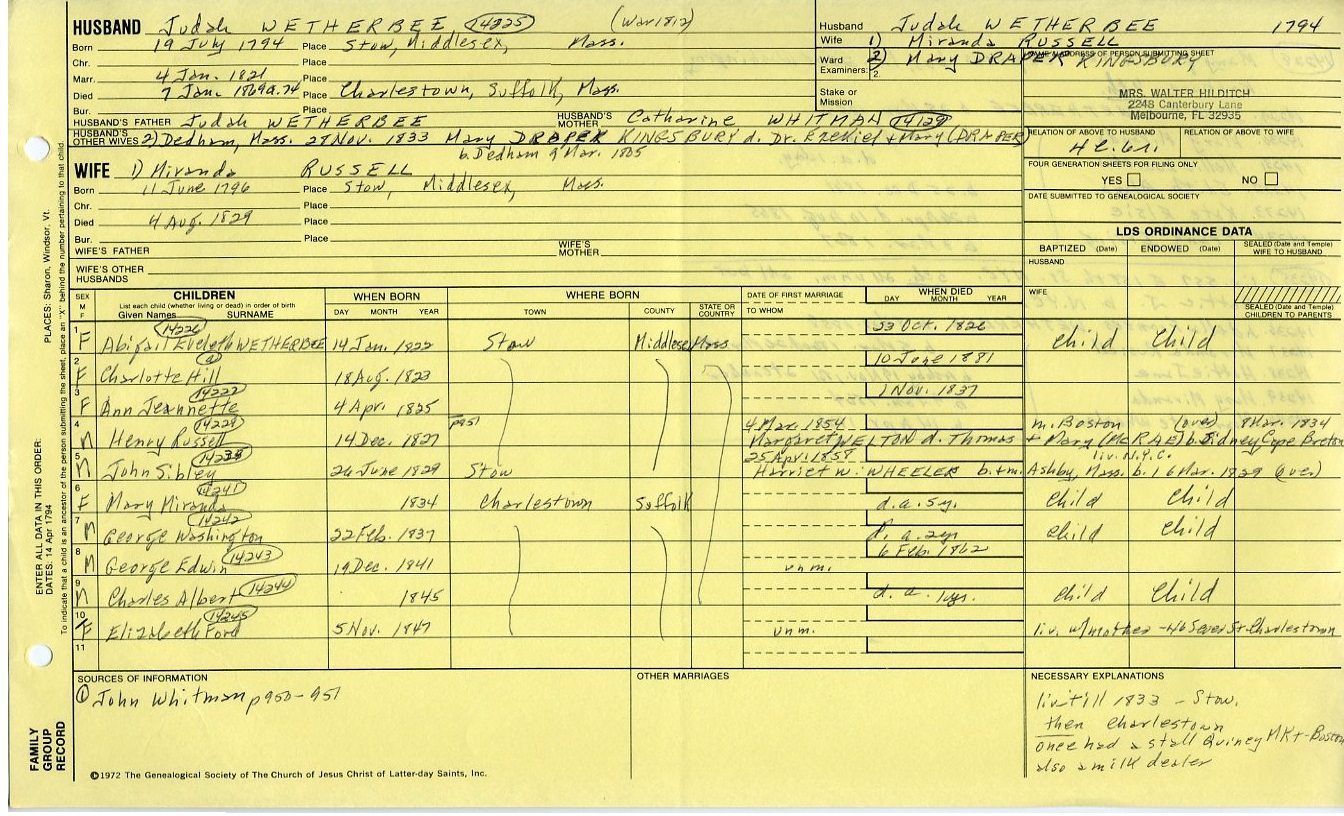 HUSBAND Judah WETHERBEE 14225 (War 1812)
Born 19 July 1794 Place Stow, Middlesex, Mass.
Chr. Place
Marr. 4 Jan. 1821 Place
Died 7 Jan. 1869 a. 74 Place Charlestown, Suffolk, Mass.
Bur. Place
HUSBAND'S FATHER Judah WETHERBEE HUSBAND'S MOTHER Catharine WHITMAN 14129
HUSBAND'S OTHER WIVES 2) Dedham, Mass. 27 Nov. 1833 Mary DRAPER KINGSBURY d. Dr. Ezekiel + Mary (DRAPER)
b. Dedham 9 Mar. 1805
Husband Judah WETHERBEE 1794
Wife 1) Miranda RUSSELL
Ward 2) Mary DRAPER KINGSBURY
Examiners: 2.
Stake or Mission
NAME & ADDRESS OF PERSON SUBMITTING SHEET
MRS. WALTER HILDITCH
2248 Canterbury Lane
Melbourne, FL 32935
RELATION OF ABOVE TO HUSBAND RELATION OF ABOVE TO WIFE
FOUR GENERATION SHEETS FOR FILING ONLY
YES NO
DATE SUBMITTED TO GENEALOGICAL SOCIETY
WIFE 1) Miranda RUSSELL
Born 11 June 1796 Place Stow, Middlesex, Mass.
Chr. Place
Died 4 Aug. 1829 Place
Bur. Place
WIFE'S FATHER WIFE'S MOTHER
WIFE'S OTHER HUSBANDS
LDS ORDINANCE DATA
BAPTIZED (Date) ENDOWED (Date) SEALED (Date and Temple) WIFE TO HUSBAND
HUSBAND
WIFE
SEALED (Date and Temple) CHILDREN TO PARENTS
SEX M F CHILDREN WHEN BORN WHERE BORN DATE OF FIRST MARRIAGE WHEN DIED
List each child (whether living or dead) in order of birth
Given Names SURNAME DAY MONTH YEAR TOWN COUNTY STATE OR COUNTRY TO WHOM DAY MONTH YEAR
1 F 14226 Abigail Evelyth WETHERBEE 14 Jan. 1822 Stow Middlesex Mass Oct. 1826 child Child
2 F Charlotte Hill 18 Aug. 1823 10 June 1881
3 F 14222 Ann Jeannette 4 Apr. 1825 1 Nov. 1837
4 M 14229 Henry Russell 14 Dec. 1827 p951 4 Mar. 1854 Margaret WELTON d. Thomas m. Boston (over) 8 Mar. 1834
+ Mary (McRAE) b. Sidney Cape Breton
liv. N.Y.C.
5 M 14238 John Sibley 26 June 1829 Stow 25 April 1858 Harriet W. WHEELER b. + m. Ashby, Mass. b. 16 Mar. 1829 (over)
6 F 14241 Mary Miranda 1834 Charlestown Suffolk d. a. 5y. child Child
7 M 14242 George Washington 22 Feb. 1837 d. a. 2yr child Child
8 M 14243 George Edwin 19 Dec. 1841 unm. 6 Feb. 1862
9 M 14244 Charles Albert 1845 d. a. 1yr. child Child
10 F 14245 Elizabeth Ford 5 Nov. 1847 unm. liv. w/mother - 46 Sever St Charlestown
11
SOURCES OF INFORMATION
① John Whitman p950-951
OTHER MARRIAGES
NECESSARY EXPLANATIONS
liv. till 1833 - Stow.
then Charlestown
once had a stall Quincy MKt - Boston
also a milk dealer
©1972 The Genealogical Society of The Church of Jesus Christ of Latter-day Saints, Inc.
FAMILY GROUP RECORD
ENTER ALL DATA IN THIS ORDER:
DATES: 14 Apr 1794
PLACES: Sharon, Windsor, Vt.
To indicate that a child is an ancestor of the person submitting the sheet, place an "X" behind the number pertaining to that child.